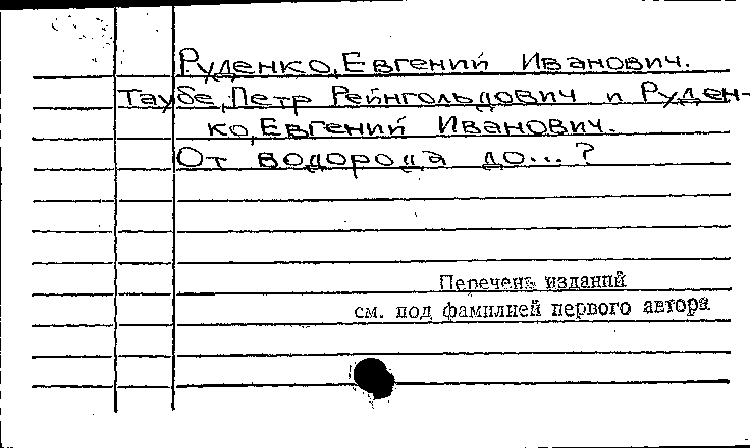 Руденко, Евгений Иванович.
Таубе, Петр Рейнгольдович и Руден-
ко, Евгений Иванович.
От водорода до...?
Перечень изданий
см. под фамилией первого автора